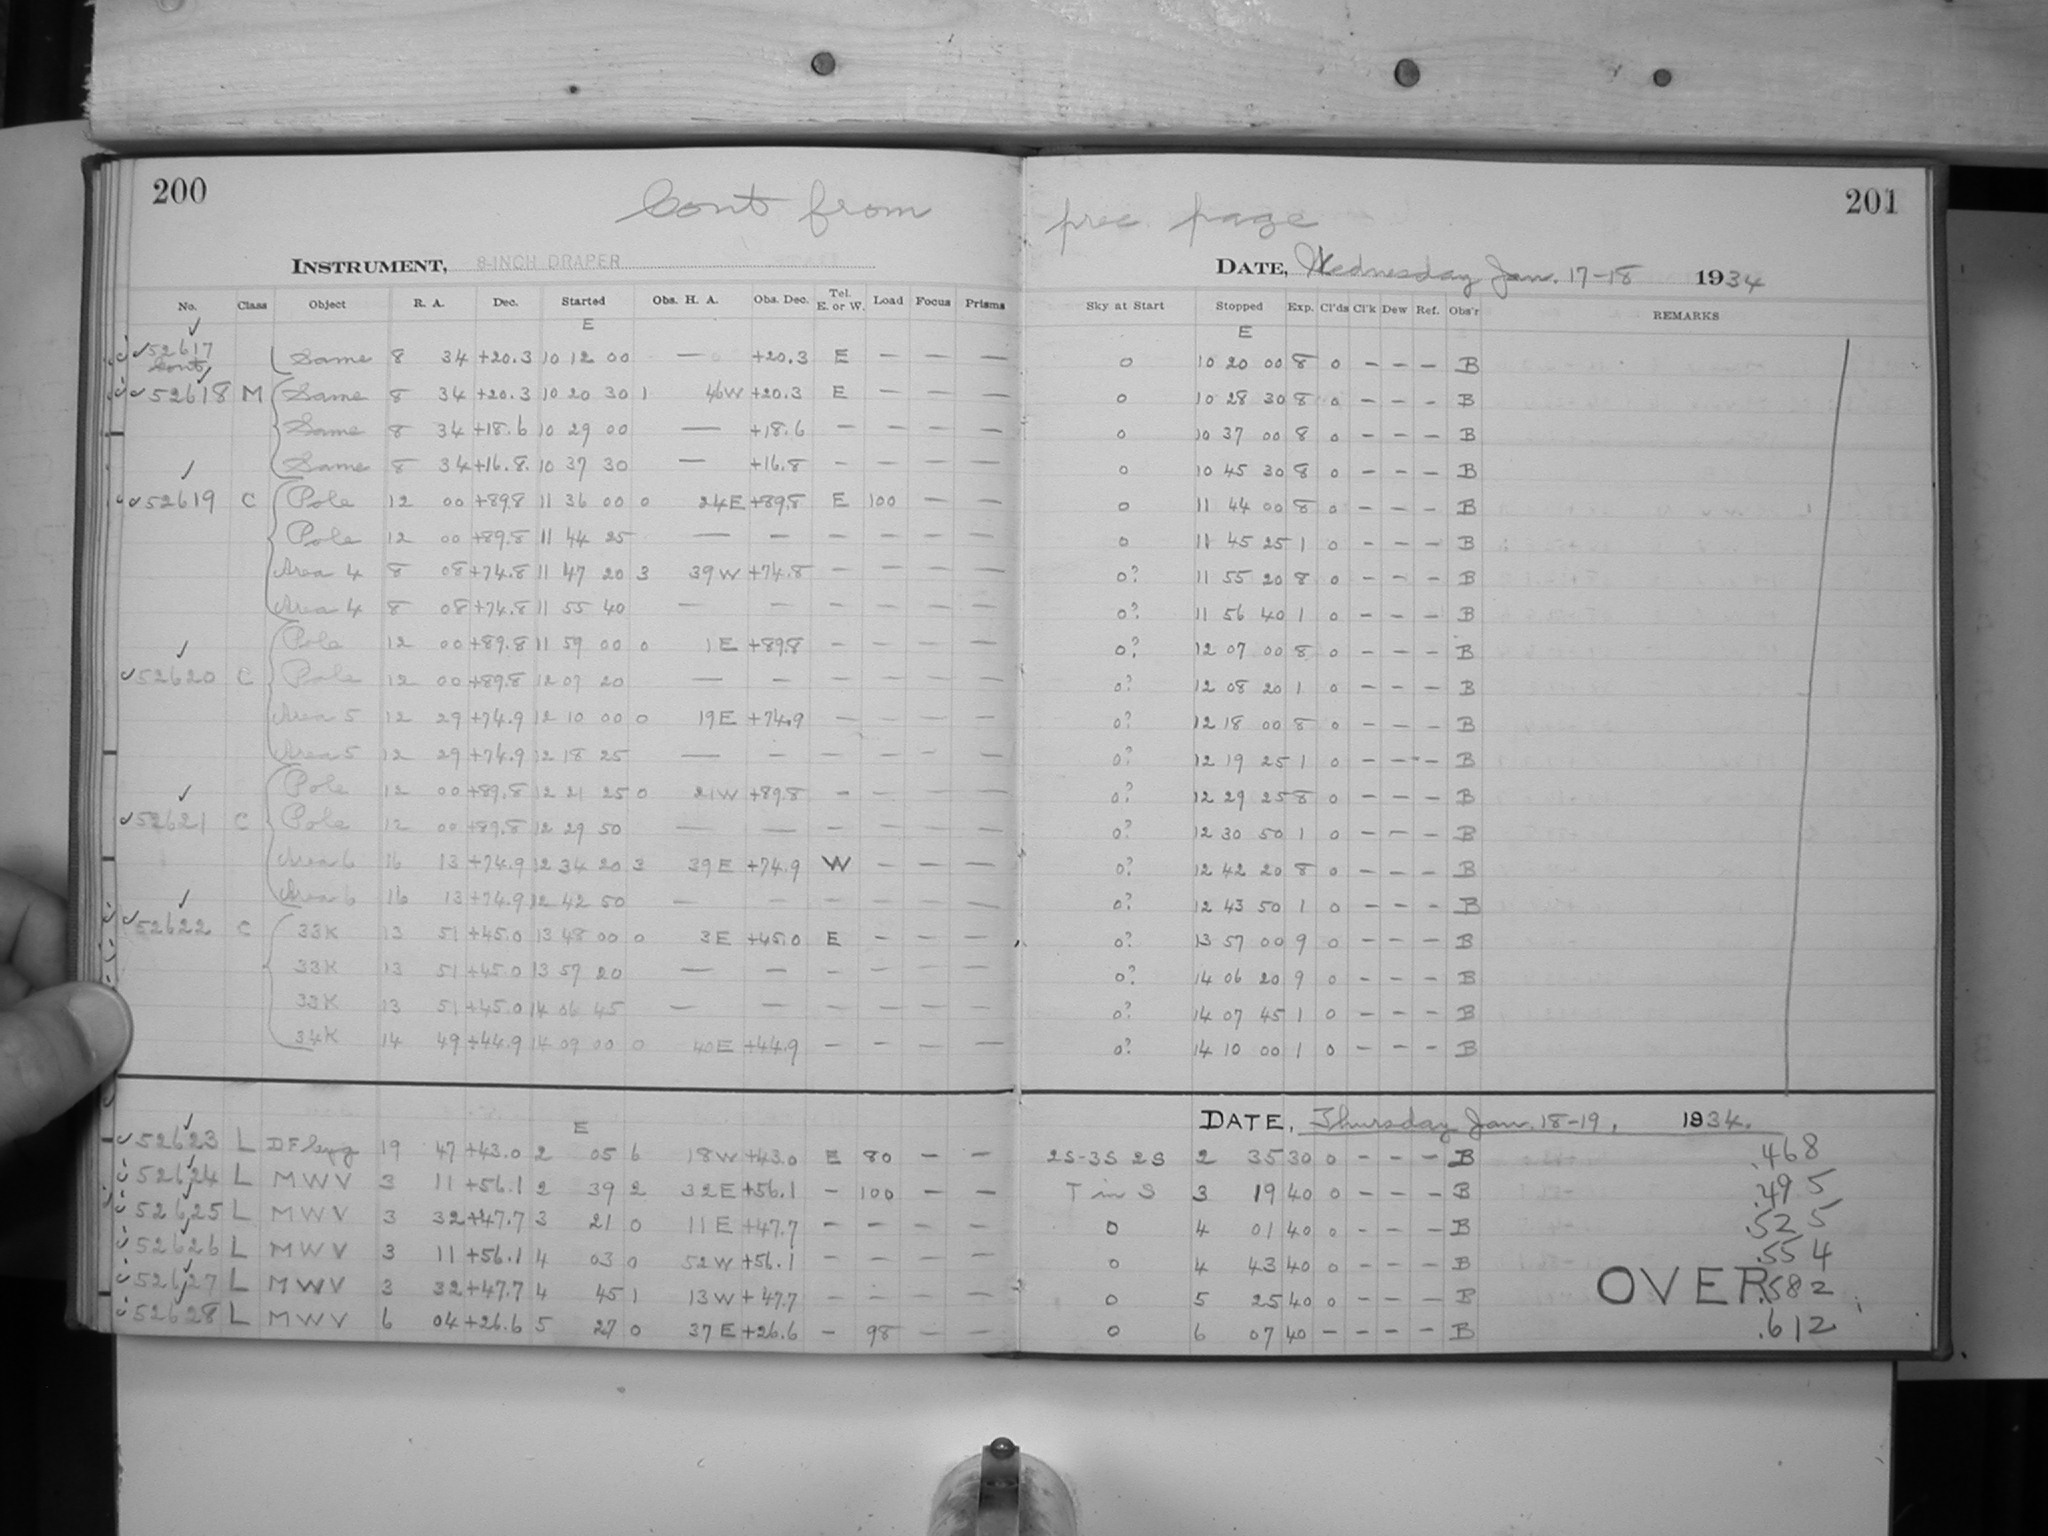 200
Cont from
prec. page
201
INSTRUMENT, 8-INCH DRAPER
DATE, Wednesday Jan. 17-18 1934
No. Class Object R. A. Dec. Started Obs. H. A. Obs. Dec. Tel. E. or W. Load Focus Prisms Sky at Start Stopped Exp. Cl'ds Cl'k Dew Ref. Obs'r REMARKS
E E
52617 Cont. Same 8 34 +20.3 10 12 00 — +20.3 E — — — 0 10 20 00 8 0 - - - B
52618 M Same 8 34 +20.3 10 20 30 1 46W +20.3 E — — — 0 10 28 30 8 0 - - - B
Same 8 34 +18.6 10 29 00 — +18.6 - — — — 0 10 37 00 8 0 - - - B
Same 8 34 +16.8 10 37 30 — +16.8 - - — — 0 10 45 30 8 0 - - - B
52619 C Pole 12 00 +89.8 11 36 00 0 24E +89.8 E 100 — — 0 11 44 00 8 0 - - - B
Pole 12 00 +89.8 11 44 25 — - - - — — 0 11 45 25 1 0 - - - B
Area 4 8 08 +74.8 11 47 20 3 39W +74.8 - - — — 0? 11 55 20 8 0 - - - B
Area 4 8 08 +74.8 11 55 40 — - - - — — 0? 11 56 40 1 0 - - - B
Pole 12 00 +89.8 11 59 00 0 1E +89.8 - - — — 0? 12 07 00 8 0 - - - B
52620 C Pole 12 00 +89.8 12 07 20 — - - - — — 0? 12 08 20 1 0 - - - B
Area 5 12 29 +74.9 12 10 00 0 19E +74.9 - - — — 0? 12 18 00 8 0 - - - B
Area 5 12 29 +74.9 12 18 25 — - - - - — 0? 12 19 25 1 0 - - - B
Pole 12 00 +89.8 12 21 25 0 21W +89.8 - - — — 0? 12 29 25 8 0 - - - B
52621 C Pole 12 00 +89.8 12 29 50 — — - - — — 0? 12 30 50 1 0 - - - B
Area 6 16 13 +74.9 12 34 20 3 39E +74.9 W - — — 0? 12 42 20 8 0 - - - B
Area 6 16 13 +74.9 12 42 50 — - - - — — 0? 12 43 50 1 0 - - - B
52622 C 33K 13 51 +45.0 13 48 00 0 3E +45.0 E - — — 0? 13 57 00 9 0 - - - B
33K 13 51 +45.0 13 57 20 — - - - — — 0? 14 06 20 9 0 - - - B
33K 13 51 +45.0 14 06 45 — - - - — — 0? 14 07 45 1 0 - - - B
34K 14 49 +44.9 14 09 00 0 40E +44.9 - - — — 0? 14 10 00 1 0 - - - B
DATE, Thursday Jan. 18-19, 1934.
E
52623 L DF Cyg 19 47 +43.0 2 05 6 18W +43.0 E 80 - - 2S-3S 2S 2 35 30 0 - - - B .468
52624 L MWV 3 11 +56.1 2 39 2 32E +56.1 - 100 - - T in S 3 19 40 0 - - - B .495
52625 L MWV 3 32 +47.7 3 21 0 11E +47.7 - - - - 0 4 01 40 0 - - - B .525
52626 L MWV 3 11 +56.1 4 03 0 52W +56.1 - - - - 0 4 43 40 0 - - - B .554
52627 L MWV 3 32 +47.7 4 45 1 13W +47.7 - - - - 0 5 25 40 0 - - - B OVER .582
52628 L MWV 6 04 +26.6 5 27 0 37E +26.6 - 98 - - 0 6 07 40 - - - - B .612